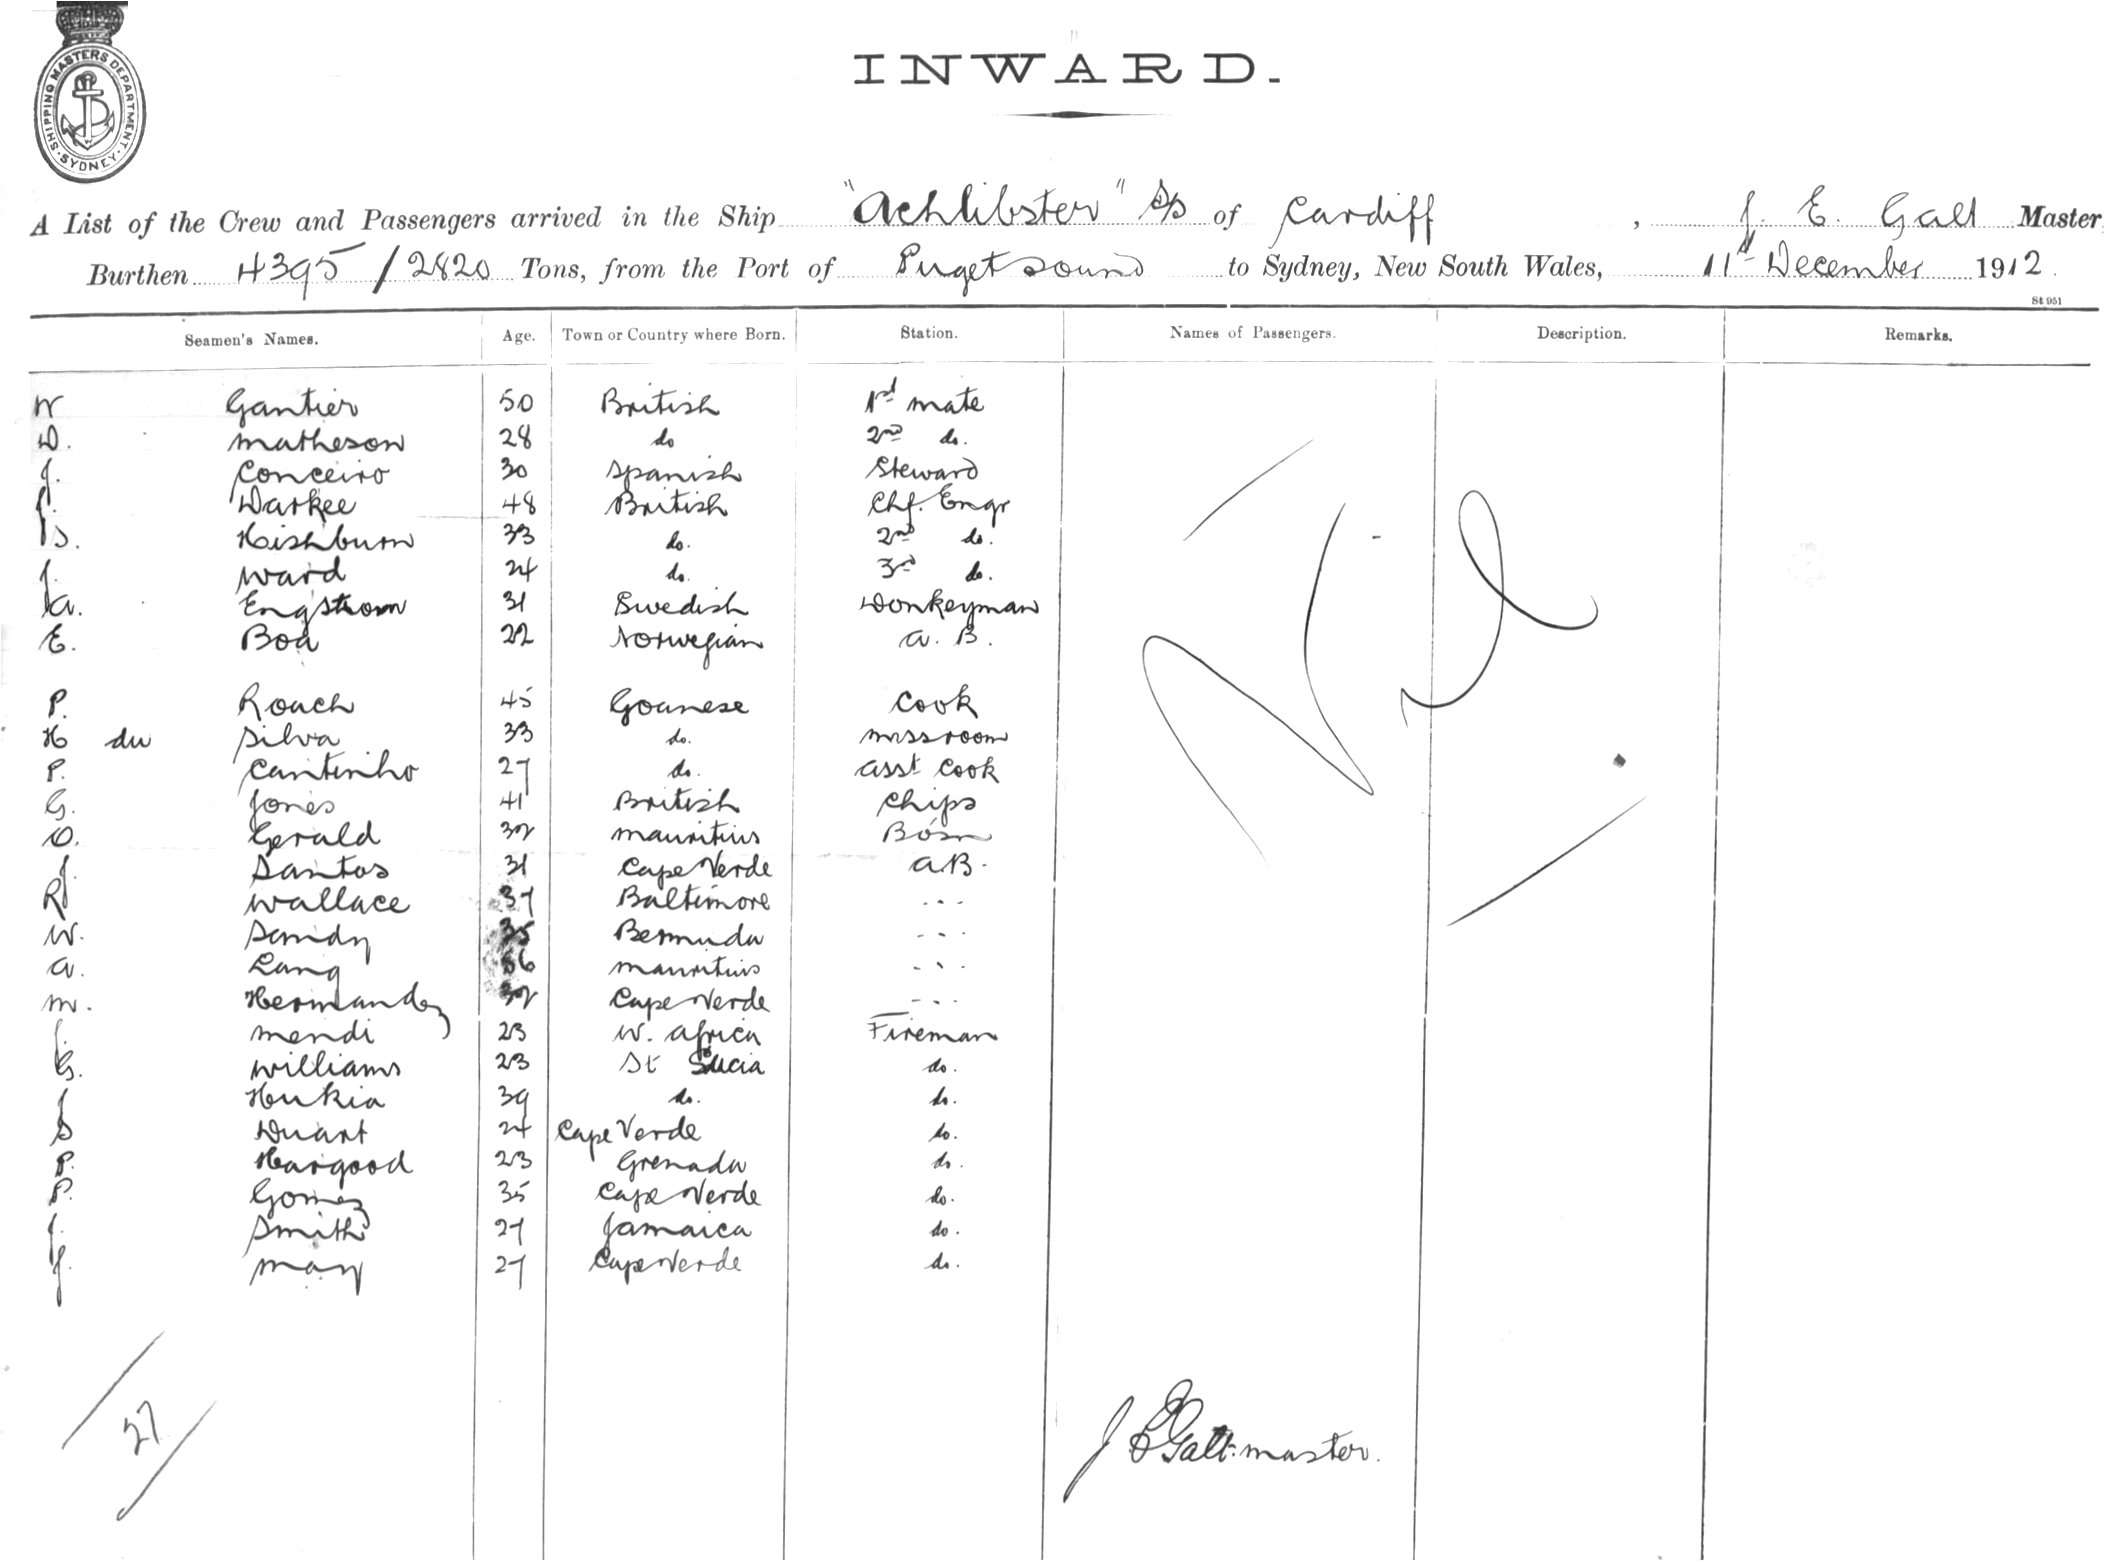 SHIPPING MASTERS DEPARTMENT
SYDNEY
INWARD.
A List of the Crew and Passengers arrived in the Ship "Achlibster" S/S of Cardiff, J. E. Galt Master
Burthen 4395/2820 Tons, from the Port of Puget Sound to Sydney, New South Wales, 11th December 1912
St 951
Seamen's Names. Age. Town or Country where Born. Station. Names of Passengers. Description. Remarks.
W Gantier 50 British 1st mate
D. Matheson 28 do 2nd do.
J. Conceiro 30 Spanish Steward
J. Darkee 48 British Chf. Engr
S. Hishburn 33 do. 2nd do.
J. Ward 24 do. 3rd do.
A. Engstrom 31 Swedish Donkeyman
E. Boa 22 Norwegian A. B.
Nil
P. Roach 45 Goanese Cook
H du Silva 33 do. Messroom
P. Cantinho 27 do. Asst Cook
G. Jones 41 British Chips
O. Gerald 32 Mauritius Bosn
J. Santos 31 Cape Verde A.B.
R Wallace 37 Baltimore - - -
W. Sandy 35 Bermuda - - -
A. Lang 36 Mauritius - - -
M. Hermandez 32 Cape Verde - - -
J. Mendi 23 W. Africa Fireman
G. Williams 23 St Lucia do.
J Hukia 39 do. do.
S Duart 24 Cape Verde do.
P. Hargood 23 Grenada do.
P. Gomez 35 Cape Verde do.
J. Smith 27 Jamaica do.
J. May 27 Cape Verde do.
27
J E Galt master.